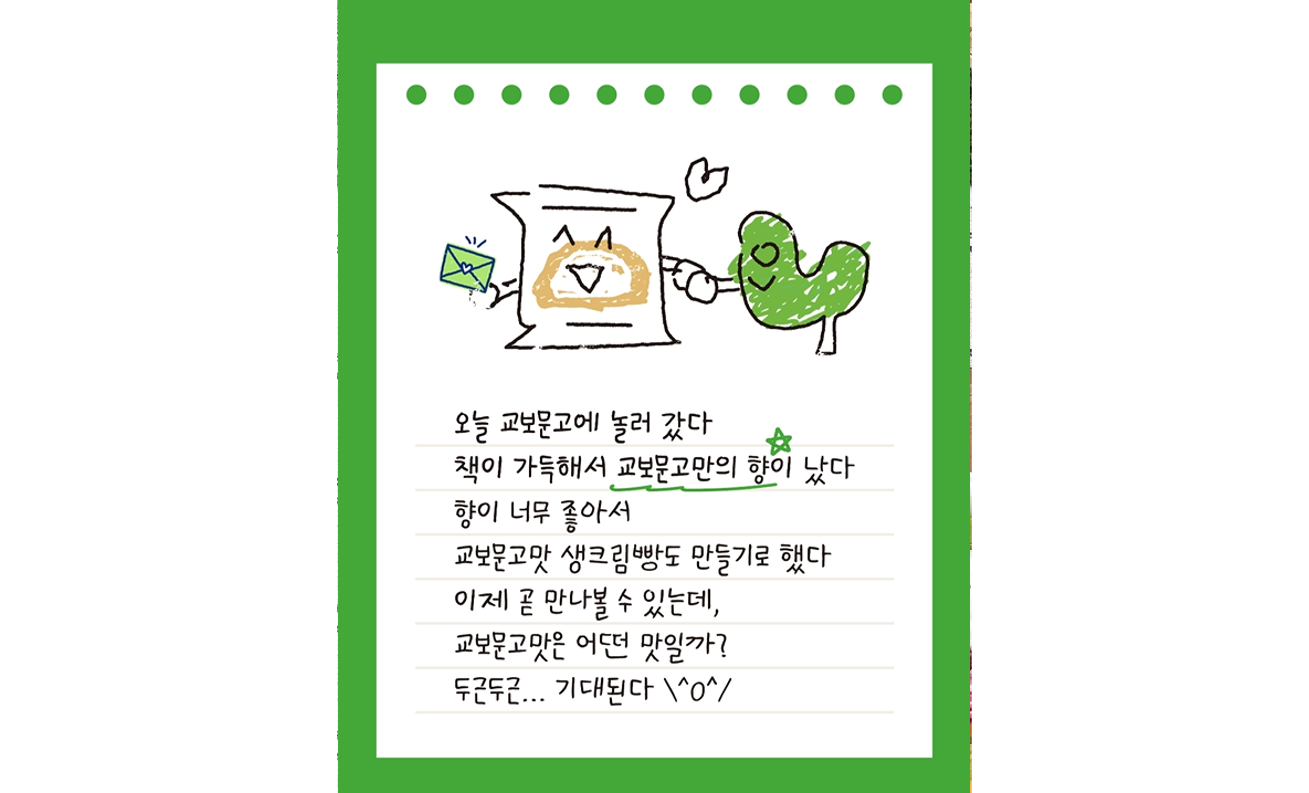 오늘 교보문고에 놀러 갔다
책이 가득해서 교보문고만의 향이 났다
향이 너무 좋아서
교보문고맛 생크림빵도 만들기로 했다
이제 곧 만나볼 수 있는데,
교보문고맛은 어떤 맛일까?
두근두근... 기대된다 \^O^/